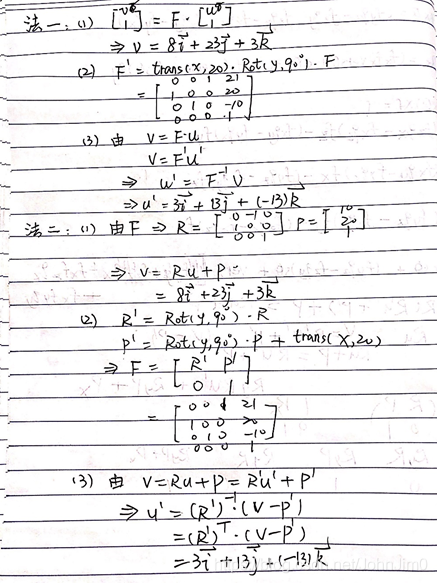 法一：(1) [v 1] = F · [u 1]
⇒ v = 8i + 23j + 3k
(2) F' = trans(x,20) · Rot(y,90°) · F
= [0 0 1 21
1 0 0 20
0 1 0 -10
0 0 0 1]
(3) 由 v = F·u
v = F'u'
⇒ u' = F'⁻¹ v
⇒ u' = 3i + 13j + (-13)k
法二：(1) 由F ⇒ R = [0 -1 0
1 0 0
0 0 1] P = [10
20
1]
⇒ v = Ru + p
= 8i + 23j + 3k
(2) R' = Rot(y,90°) · R
p' = Rot(y,90°) · p + trans(x,20)
⇒ F = [R' p'
0 1]
= [0 0 1 21
1 0 0 20
0 1 0 -10
0 0 0 1]
(3) 由 v = Ru + p = R'u' + p'
⇒ u' = (R')⁻¹ · (v - p')
= (R')ᵀ · (v - p')
= 3i + 13j + (-13)k